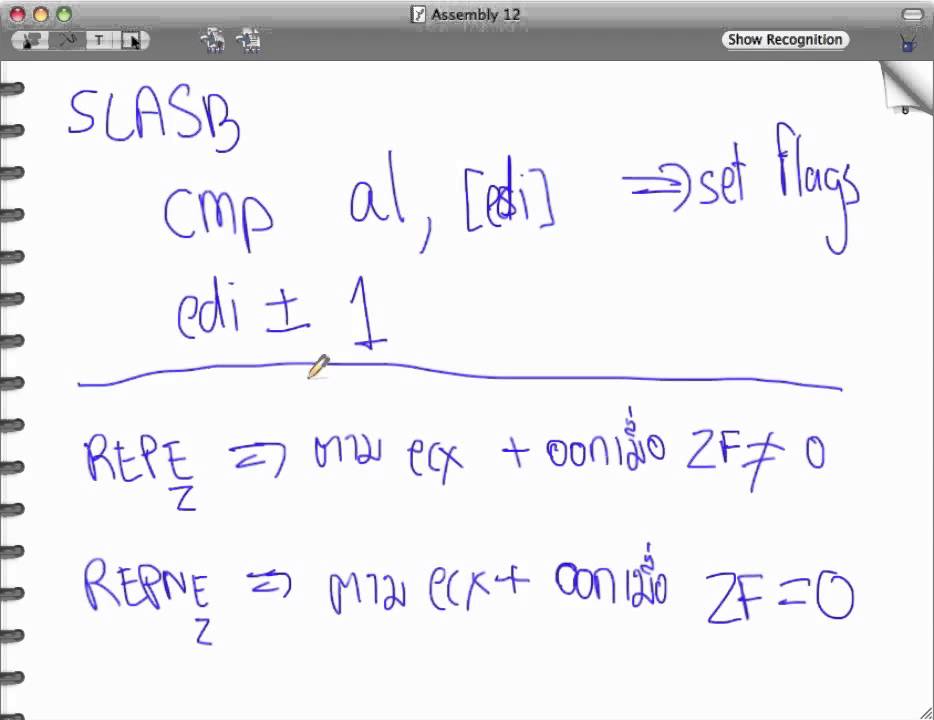 Assembly 12
T
Show Recognition
6
SCASB
cmp al, [edi] ⇒ set flags
edi ± 1
REPE ⇒ ตาม ecx + ออกเมื่อ ZF ≠ 0
Z
REPNE ⇒ ตาม ecx + ออกเมื่อ ZF = 0
Z